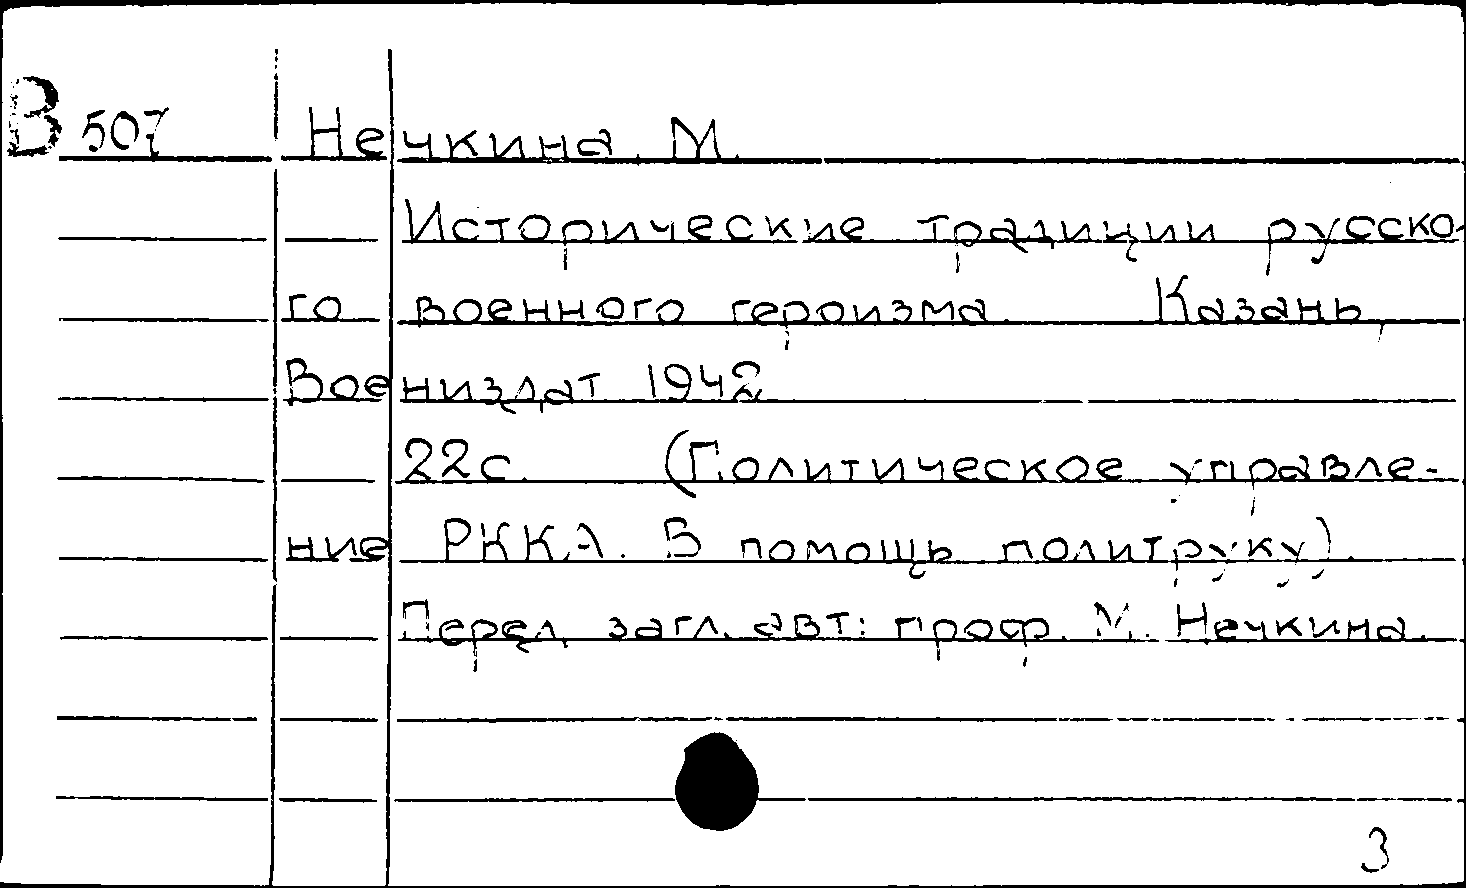 В 507 Нечкина М.
Исторические традиции русско-
го военного героизма. Казань,
Воениздат 1942
22с. (Политическое управле-
ние РККА. В помощь политруку).
Перед загл. авт: проф. М. Нечкина.
3